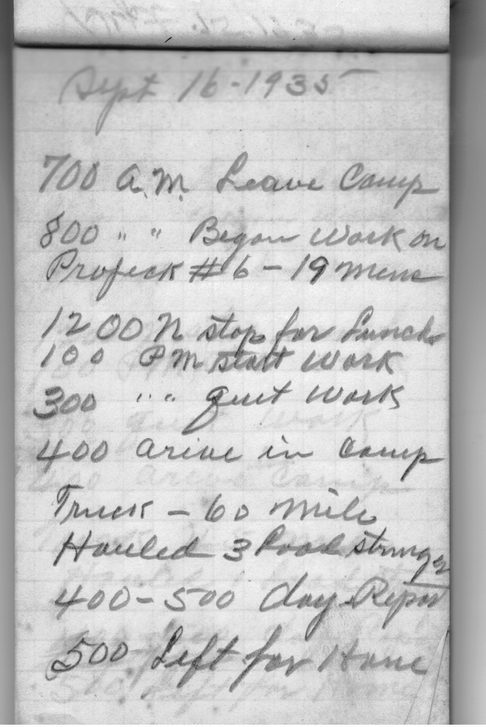 Sept 16-1935
700 A.M. Leave Camp
800 " " Began Work on
Projeck #6 - 19 mens
1200 N stop for Lunch
100 P M start Work
300 " " quit Work
400 arive in Camp
Truck - 60 Mile
Hauled 3 load stringer
400-500 day Report
500 Left for Home